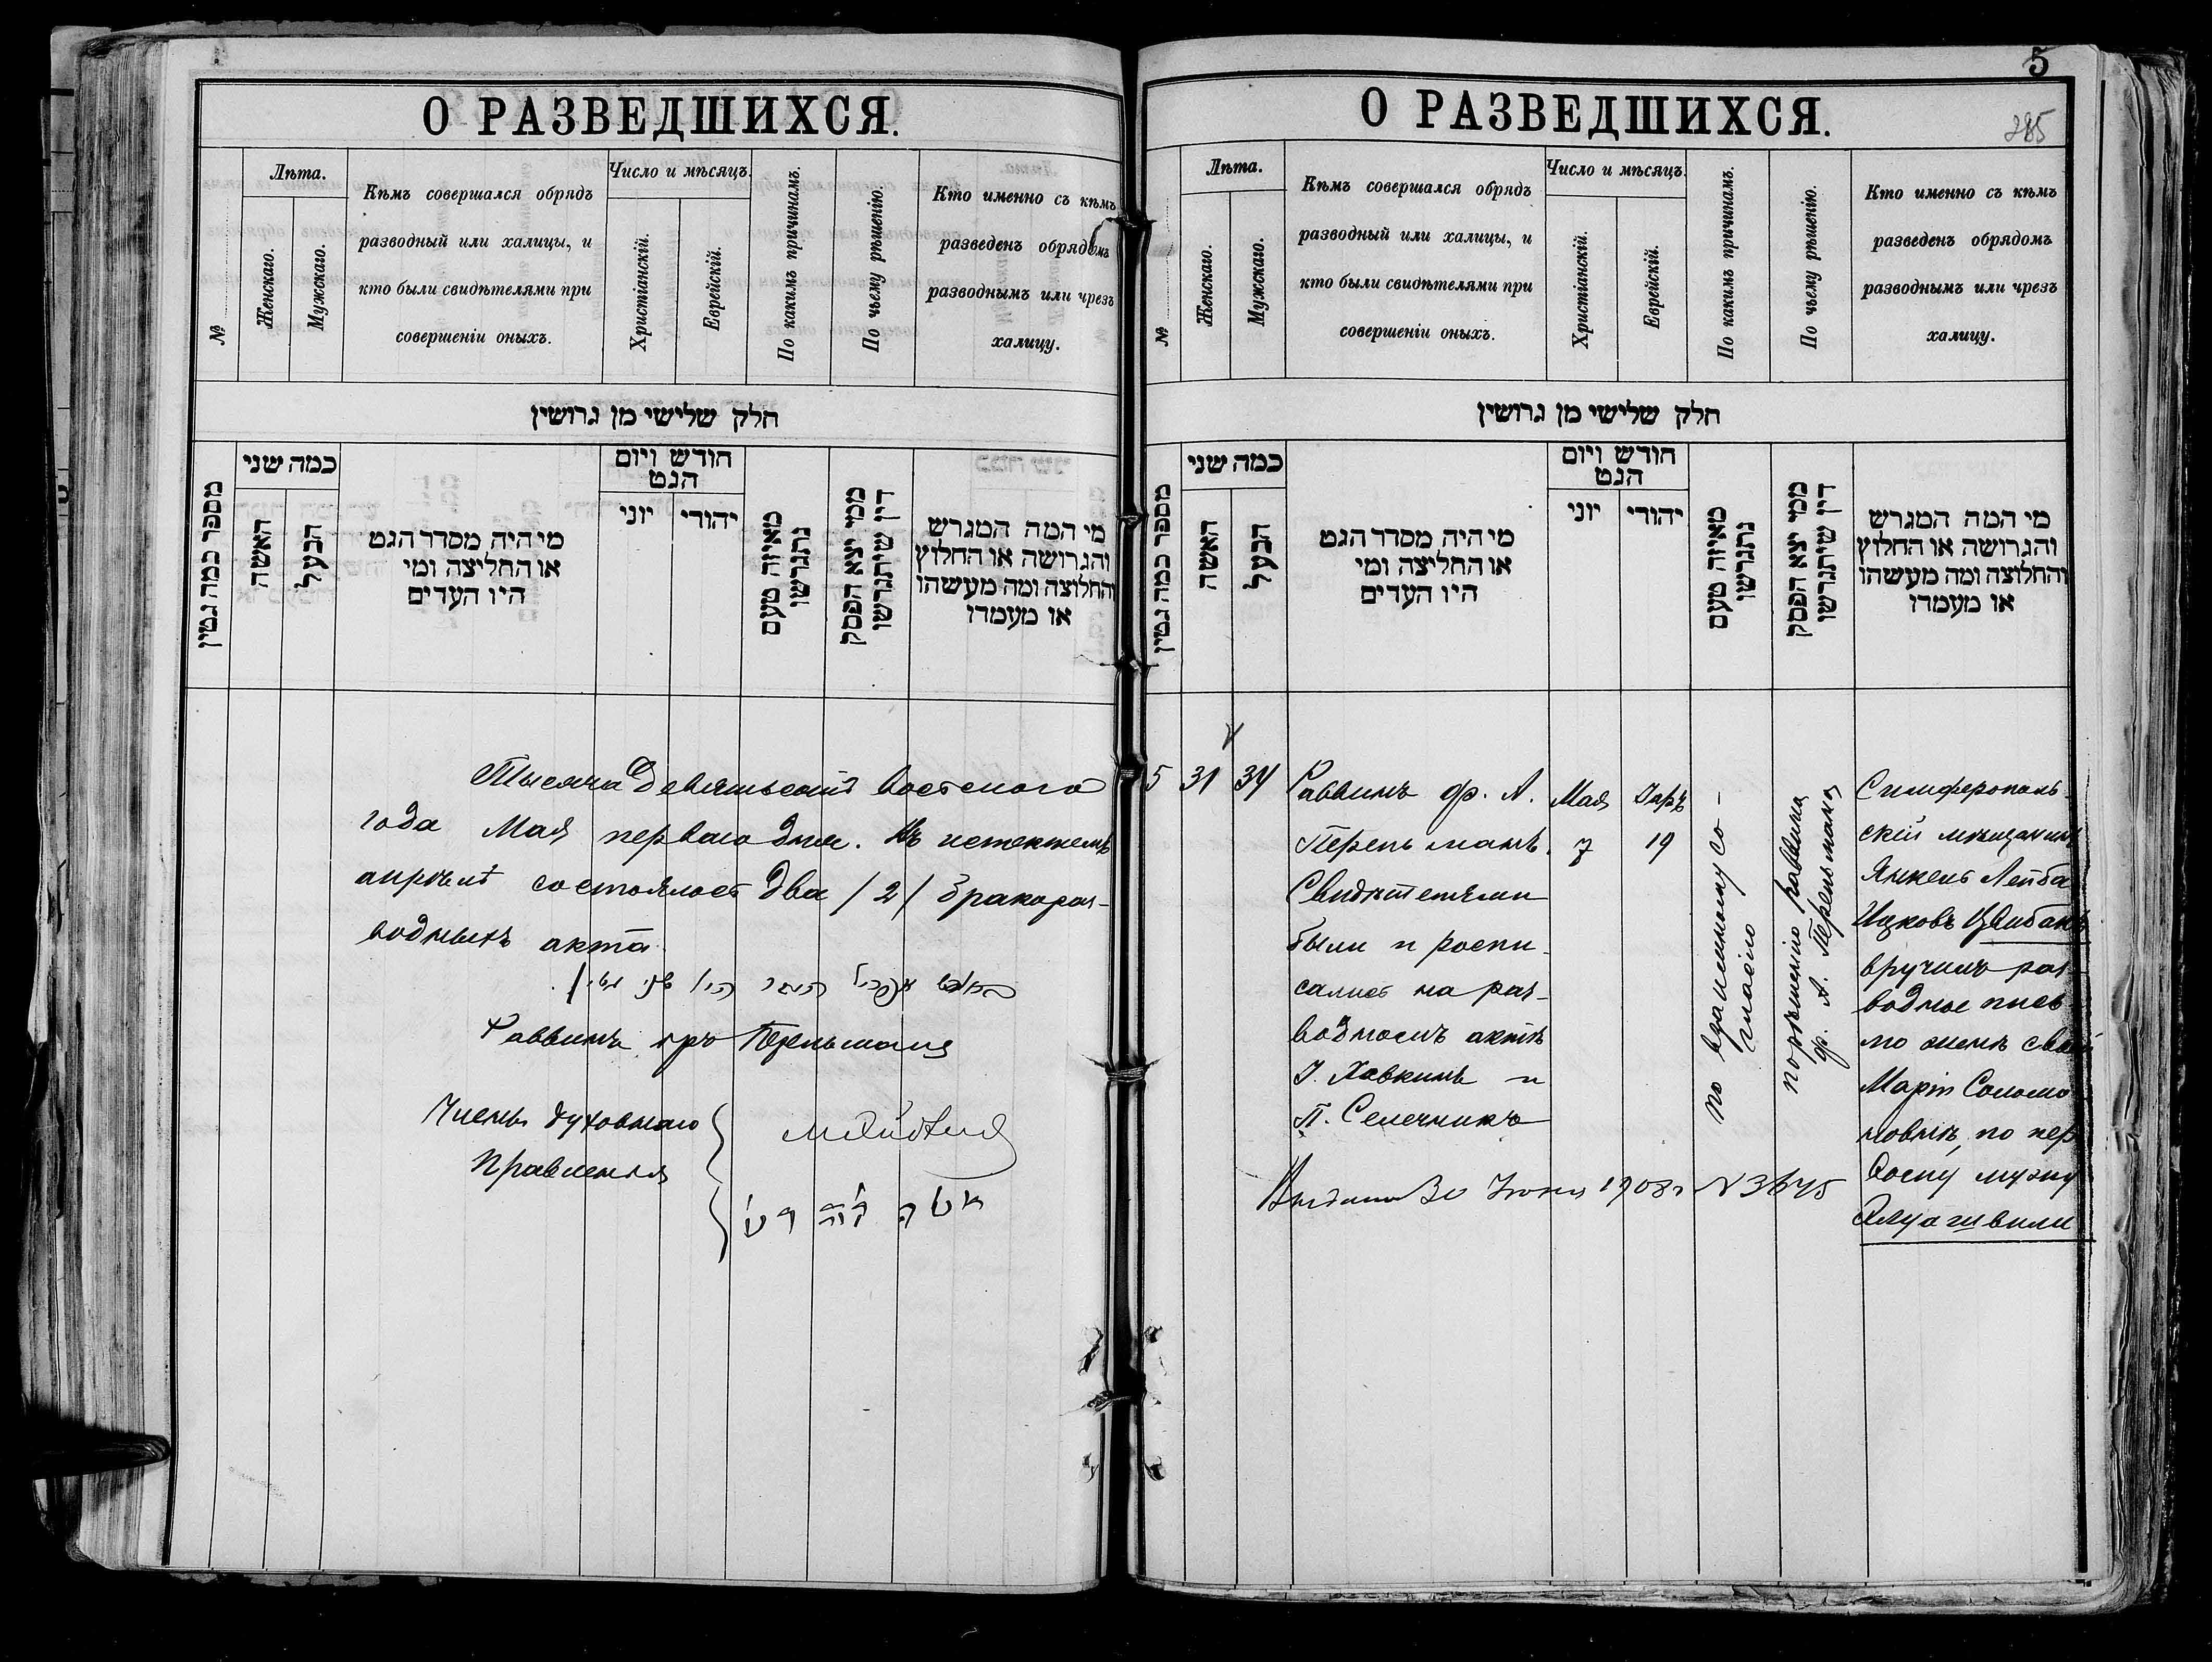 О РАЗВЕДШИХСЯ.
Лѣта.
Число и мѣсяцъ.
№
Женскаго.
Мужскаго.
Кѣмъ совершался обрядъ
разводный или халицы, и
кто были свидѣтелями при
совершеніи оныхъ.
Христіанскій.
Еврейскій.
По какимъ причинамъ.
По чьему рѣшенію.
Кто именно съ кѣмъ
разведенъ обрядомъ
разводнымъ или чрезъ
халицу.
חלק שלישי מן גרושין
מספר כמה גטין
כמה שני
האשה
הבעל
מי היה מסדר הגט
או החליצה ומי
היו העדים
חודש ויום
הגט
יוני
יהודי
מאיזה טעם
נתגרשו
ממי יצא הפסק
דין שיתגרשו
מי המה המגרש
והגרושה או החלוץ
והחלוצה ומה מעשהו
או מעמדו
Тысяча девятьсотъ восьмого
года Мая перваго дня. Въ истекшемъ
апрѣлѣ состоялось два /2/ бракораз-
водныхъ акта
Раввинъ Перельманъ
Члены духовнаго
Правленія
5
285
О РАЗВЕДШИХСЯ.
Лѣта.
Число и мѣсяцъ.
№
Женскаго.
Мужскаго.
Кѣмъ совершался обрядъ
разводный или халицы, и
кто были свидѣтелями при
совершеніи оныхъ.
Христіанскій.
Еврейскій.
По какимъ причинамъ.
По чьему рѣшенію.
Кто именно съ кѣмъ
разведенъ обрядомъ
разводнымъ или чрезъ
халицу.
חלק שלישי מן גרושין
מספר כמה גטין
כמה שני
האשה
הבעל
מי היה מסדר הגט
או החליצה ומי
היו העדים
חודש ויום
הגט
יוני
יהודי
מאיזה טעם
נתגרשו
ממי יצא הפסק
דין שיתגרשו
מי המה המגרש
והגרושה או החלוץ
והחלוצה ומה מעשהו
או מעמדו
5 31 34
Раввинъ др. А.
Перельманъ.
Свидѣтелями
были и роспи-
сались на раз-
водномъ актѣ
І. Хавкинъ и
П. Семечникъ
Мая
7
Іаръ
19
по взаимному со-
гласію
по рѣшенію раввина
др. А. Перельмана
Симферополь-
скій мѣщанинъ
Янкель Лейба
Ицковъ Цвибакъ
вручилъ раз-
водное пись-
мо женѣ своей
Маріи Соломо-
новнѣ, по пер-
вому мужу
Алуашвили
Выдана 30 Іюня 1908 г N 3645